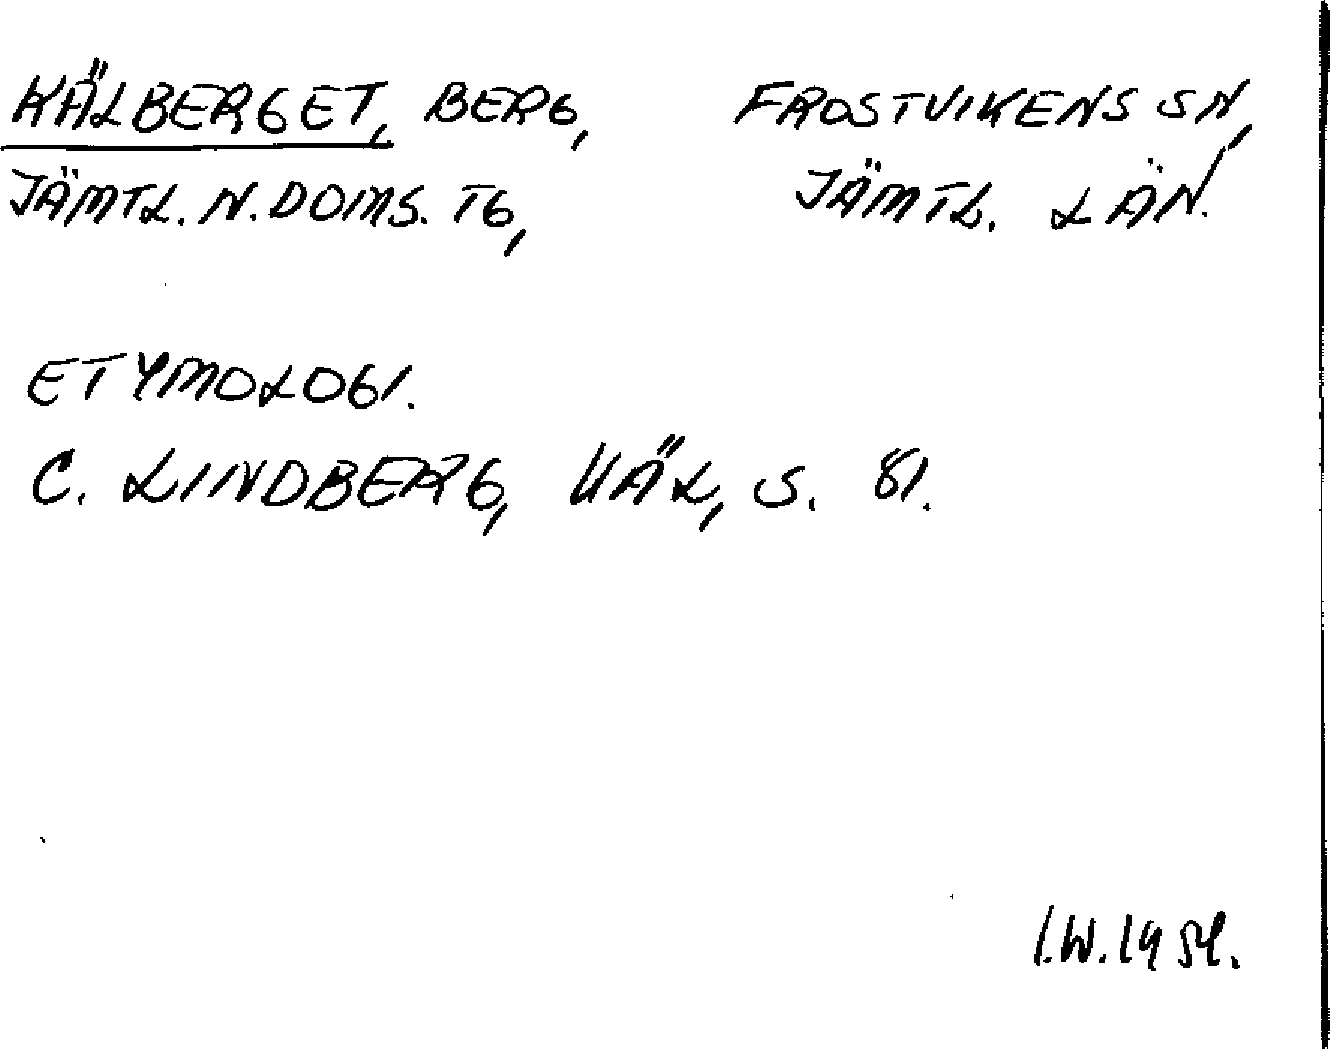 KÄLBERGET, BERG, FROSTVIKENS SN,
JÄMTL. N. DOMS. TG, JÄMTL. LÄN.
ETYMOLOGI.
C. LINDBERG, KÄL, S. 81.
I.W. 1954.